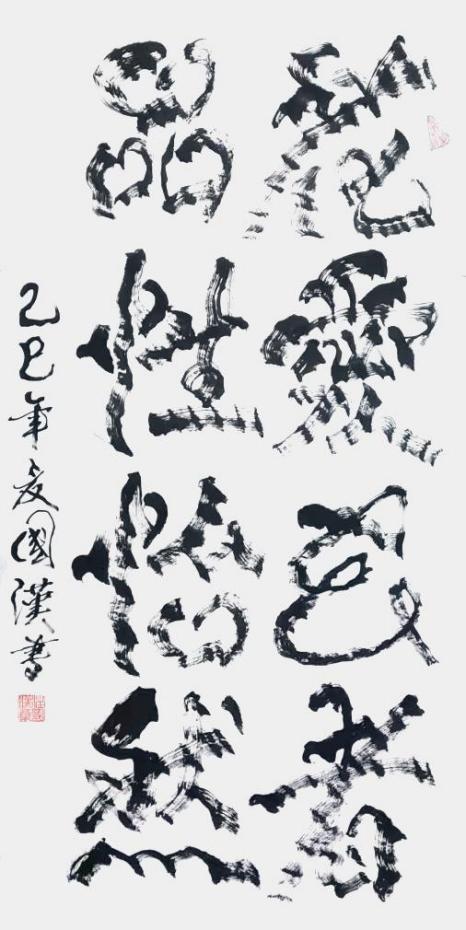 花愛色香
品性怡然
乙巳年夏國漢書